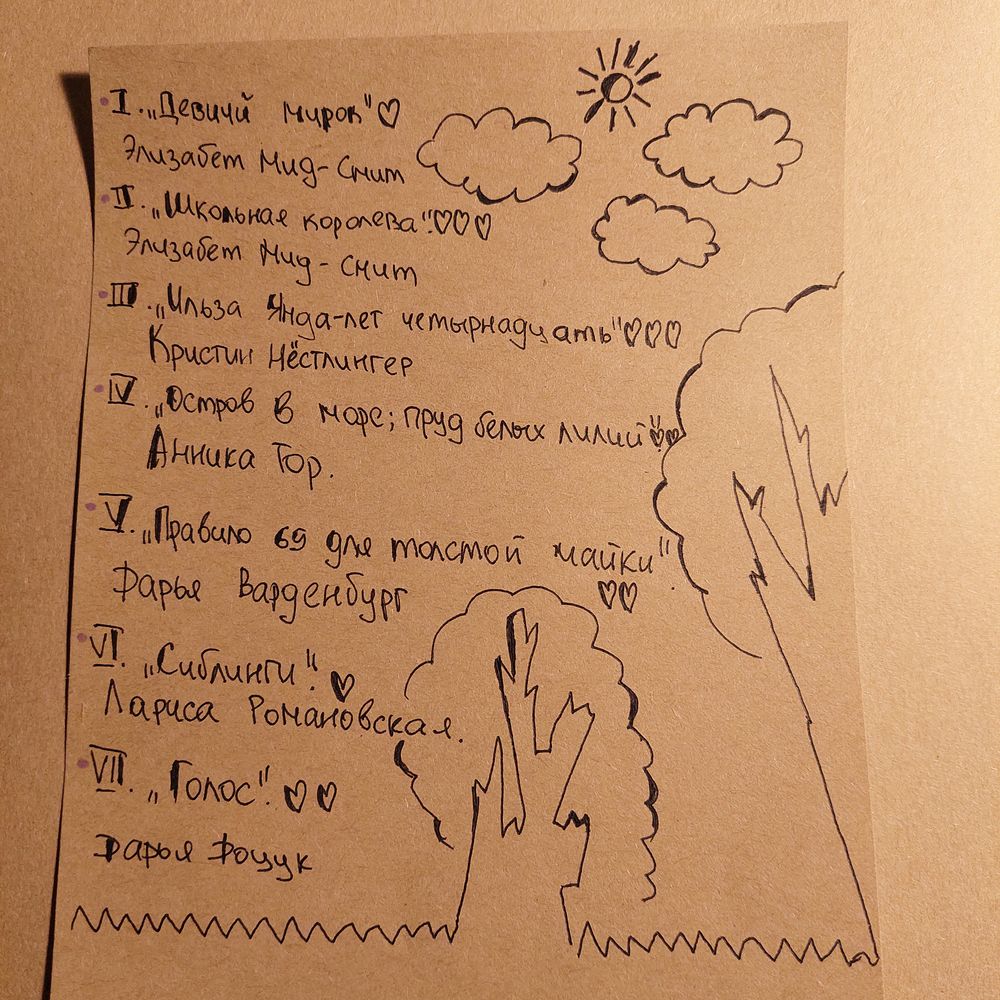 I. „Девичий мирок" ♡
Элизабет Мид-Смит
II. „Школьная королева". ♡♡♡
Элизабет Мид-Смит
III. „Ильза Янда-лет четырнадцать" ♡♡♡
Кристин Нёстлингер
IV. „Остров в море; пруд белых лилий" ♡♡
Анника Тор.
V. „Правило 69 для толстой чайки".
♡♡
Дарья Варденбург
VI. „Сиблинги". ♡
Лариса Романовская.
VII. „Голос". ♡♡
Дарья Доцук